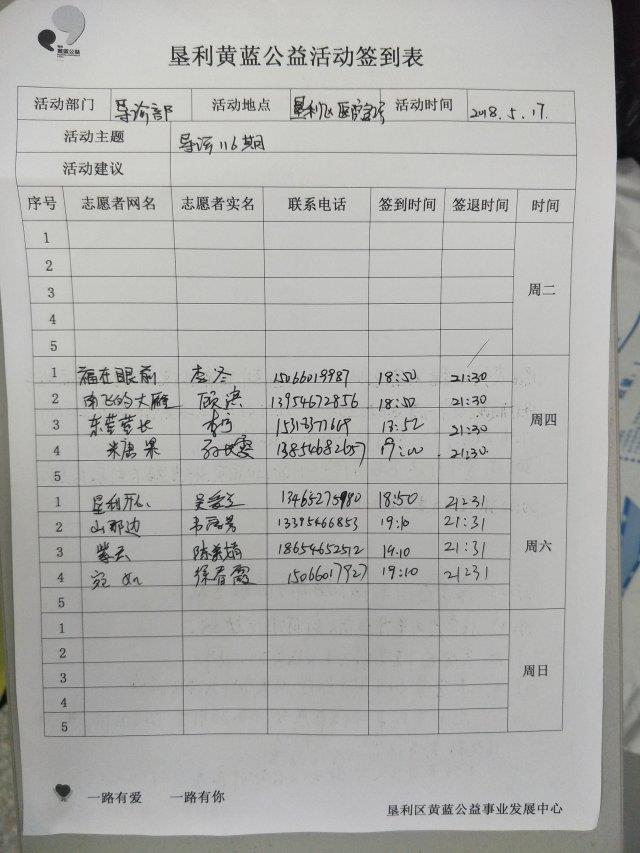 黄蓝公益
垦利黄蓝公益活动签到表
活动部门 导诊部 活动地点 垦利区医院 活动时间 2018.5.17.
活动主题 导诊116期
活动建议
序号 志愿者网名 志愿者实名 联系电话 签到时间 签退时间 时间
1
2
3 周二
4
5
1 福在眼前 15066019987 18:50 21:30
2 南飞的大雁 顾滨 13954672856 18:50 21:30
3 东营营长 李 21:30 周四
4 米唐果 13854682657 19:00 21:30
5
1 垦利 吴 13465275980 18:50 21:31
2 山那边 13395466853 19:10 21:31
3 紫云 陈 18654652512 19:10 21:31 周六
4 宛如 徐春霞 15066017927 19:10 21:31
5
1
2
3 周日
4
5
一路有爱 一路有你
垦利区黄蓝公益事业发展中心